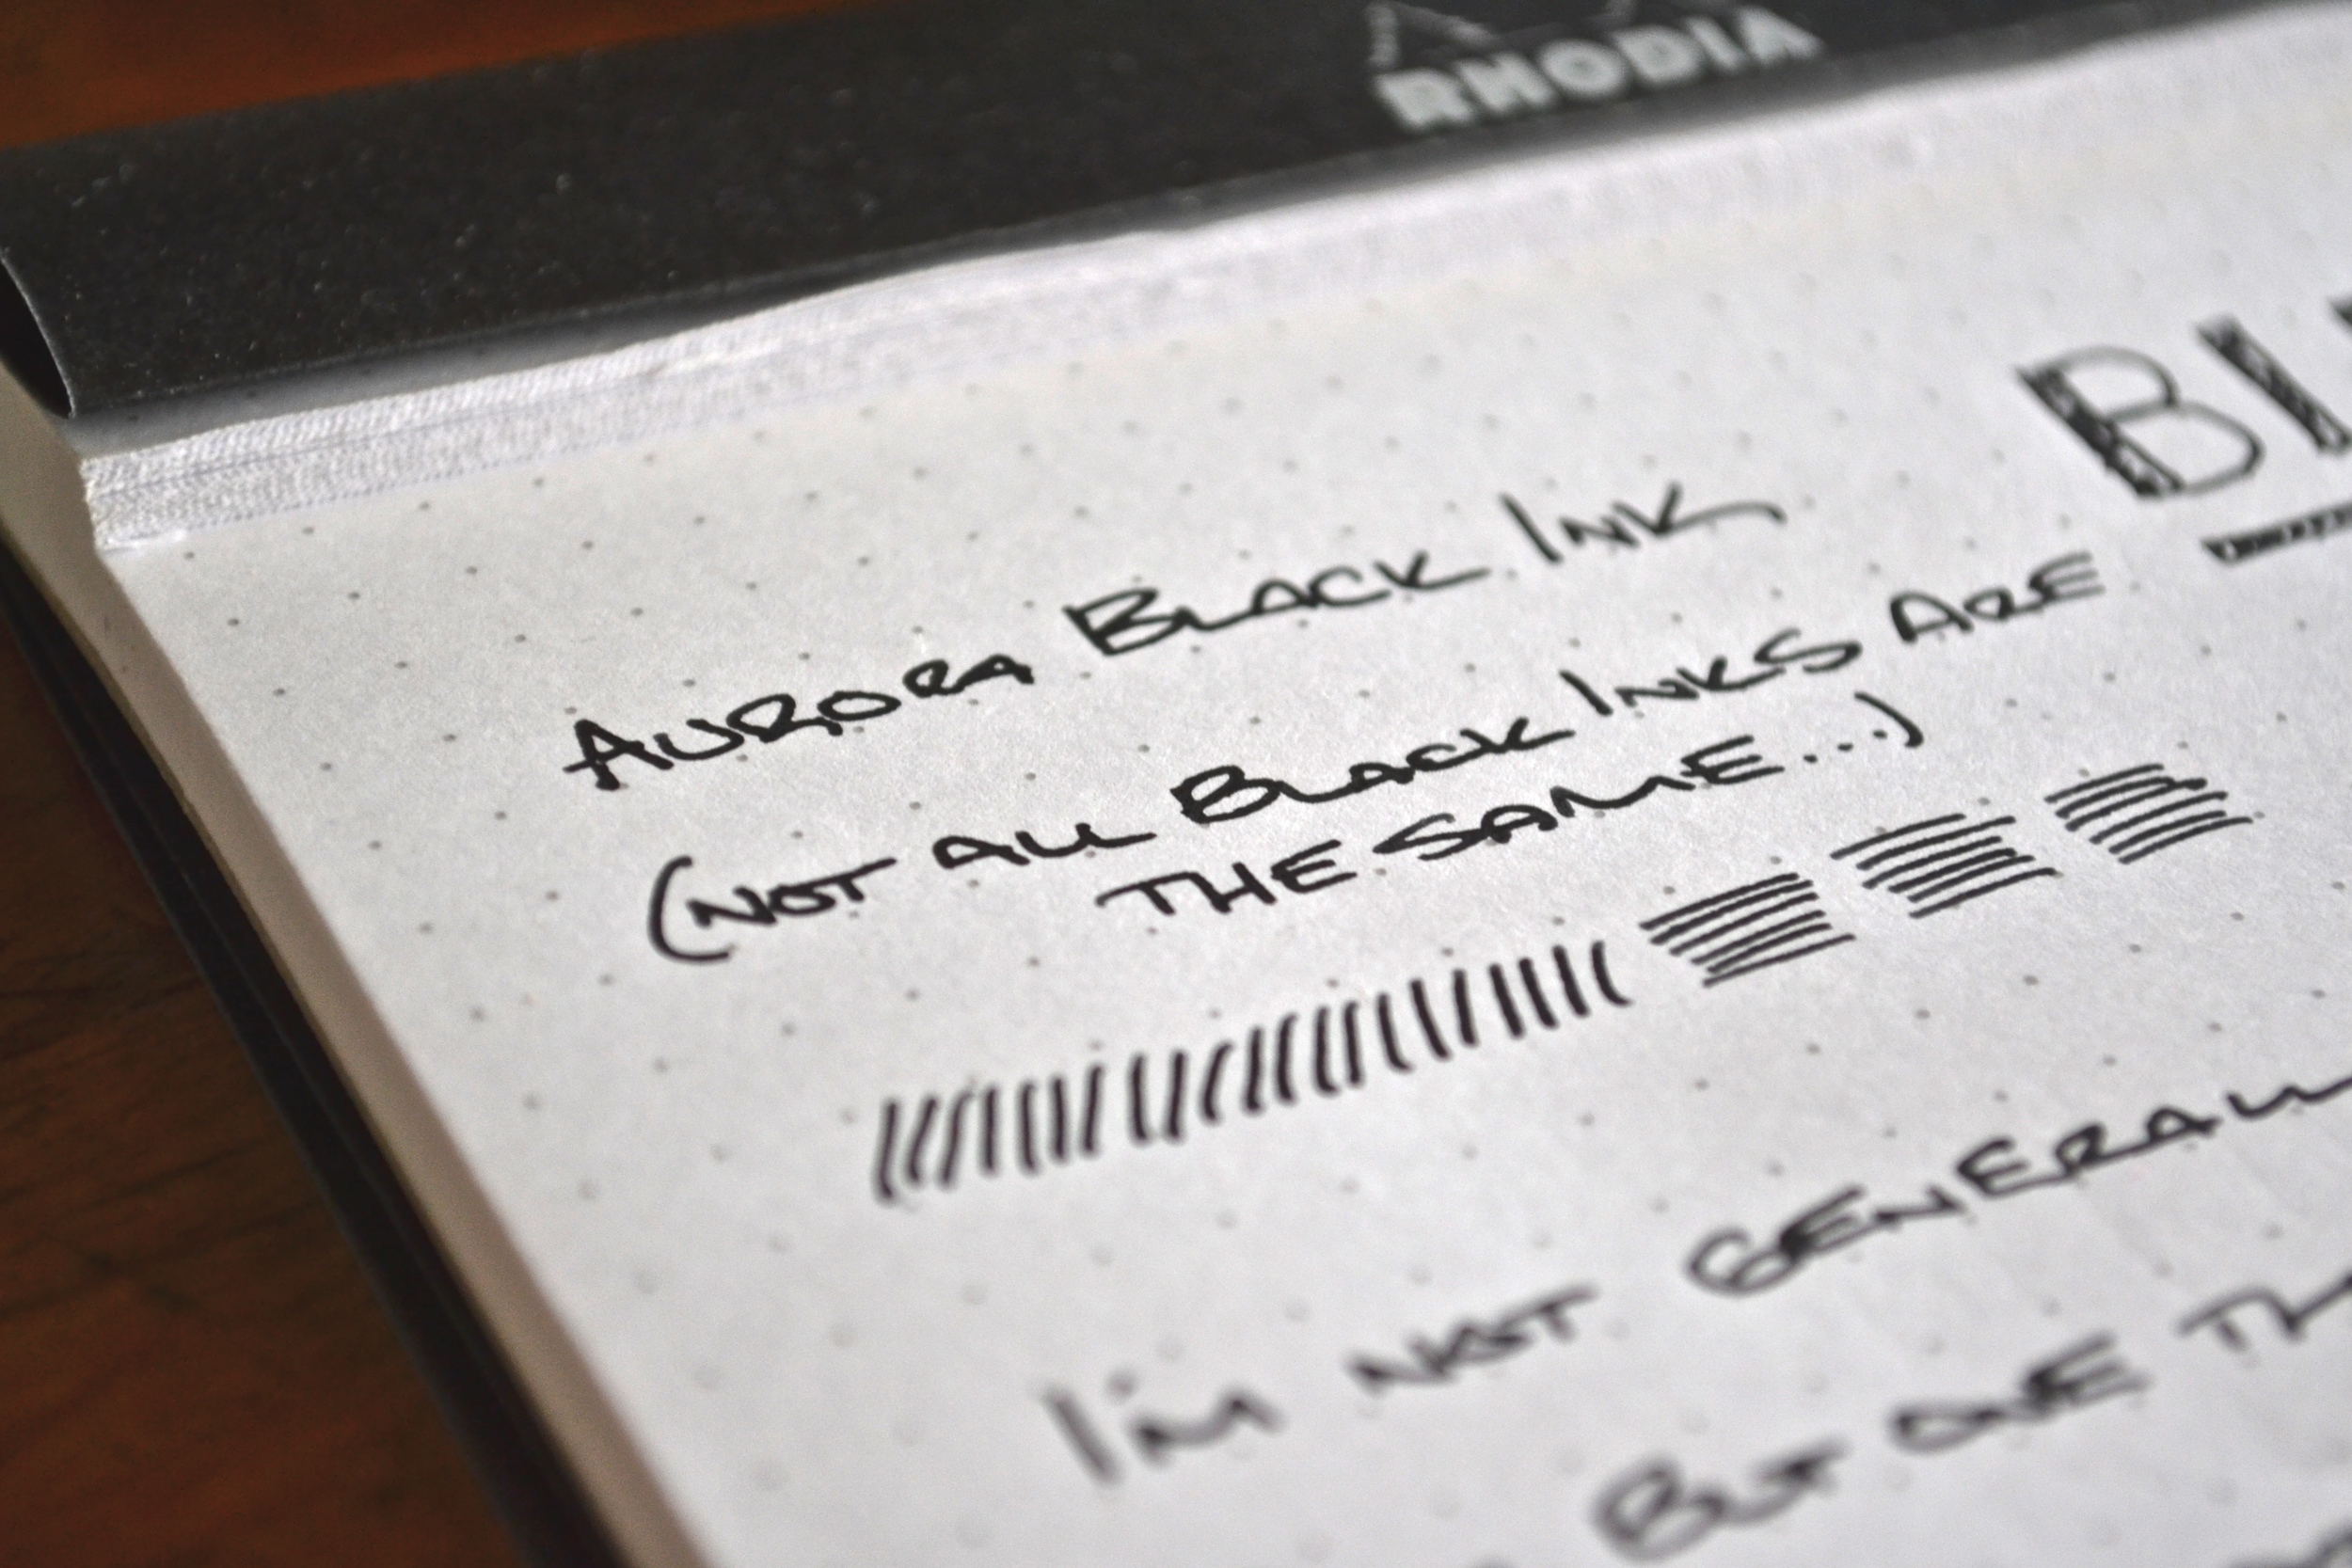 RHODIA
AURORA BLACK INK
(NOT ALL BLACK INKS ARE
THE SAME...)
I'M NOT
BUT ONE